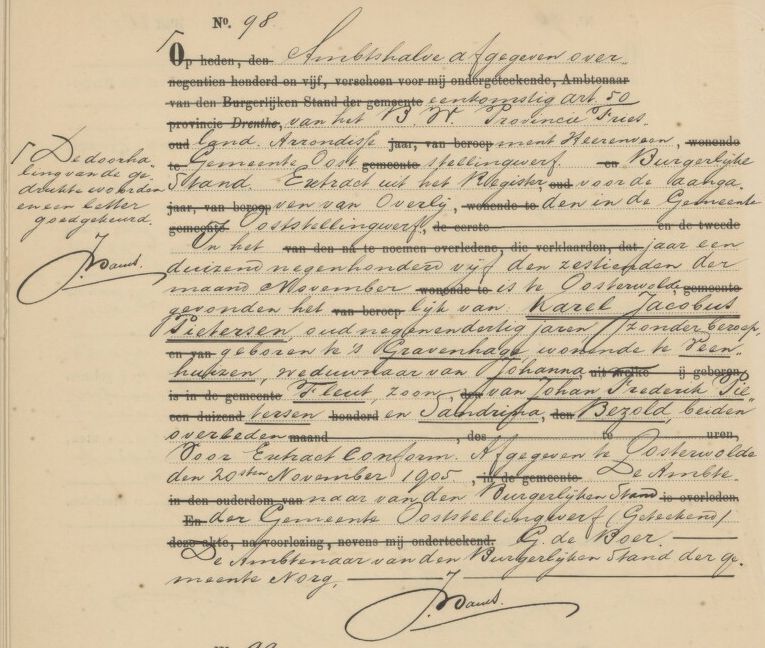 No. 98
Op heden, den Ambtshalve afgegeven over-
negentien honderd en vijf, verscheen voor mij ondergeteekende, Ambtenaar
van den Burgerlijken Stand der gemeente eenkomstig art. 50
provincie Drenthe, van het B. W. Provincie Fries-
oud land. Arrondisse jaar, van beroep ment Heerenveen, wonende
te Gemeente Oost gemeente stellingwerf en Burgerlijke
Stand. Extract uit het Register oud voor de aanga-
jaar, van beroep ven van Overlij, wonende te den in de Gemeente
gemeente Ooststellingwerf, de eerste en de tweede
In het van den na te noemen overledene, die verklaarden, dat jaar een
duizend negenhonderd vijf den zestienden der
maand November wonende te is te Oosterwolde, gemeente
gevonden het van beroep lijk van Karel Jacobus
Pietersen oud negenendertig jaren, zonder beroep,
en van geboren te 's Gravenhage, wonende te Veen-
huizen, weduwnaar van Johanna uit welke ij geboren
is in de gemeente Fleut, zoon, den van Johan Frederik Pie-
een duizend tersen honderd en Sandrina, den Bezold, beiden
overleden maand , des te uren,
Voor Extract Conform. Afgegeven te Oosterwolde
den 20sten November 1905, in de gemeente De Ambte-
in den ouderdom van naar van den Burgerlijken Stand is overleden.
En der Gemeente Ooststellingwerf (Geteekend)
deze akte, na voorlezing, nevens mij onderteekend. G. de Boer.
De Ambtenaar van den Burgerlijken Stand der ge-
meente Norg,
De doorha-
ling van de ge-
drukte woorden
en een letter
goedgekeurd.